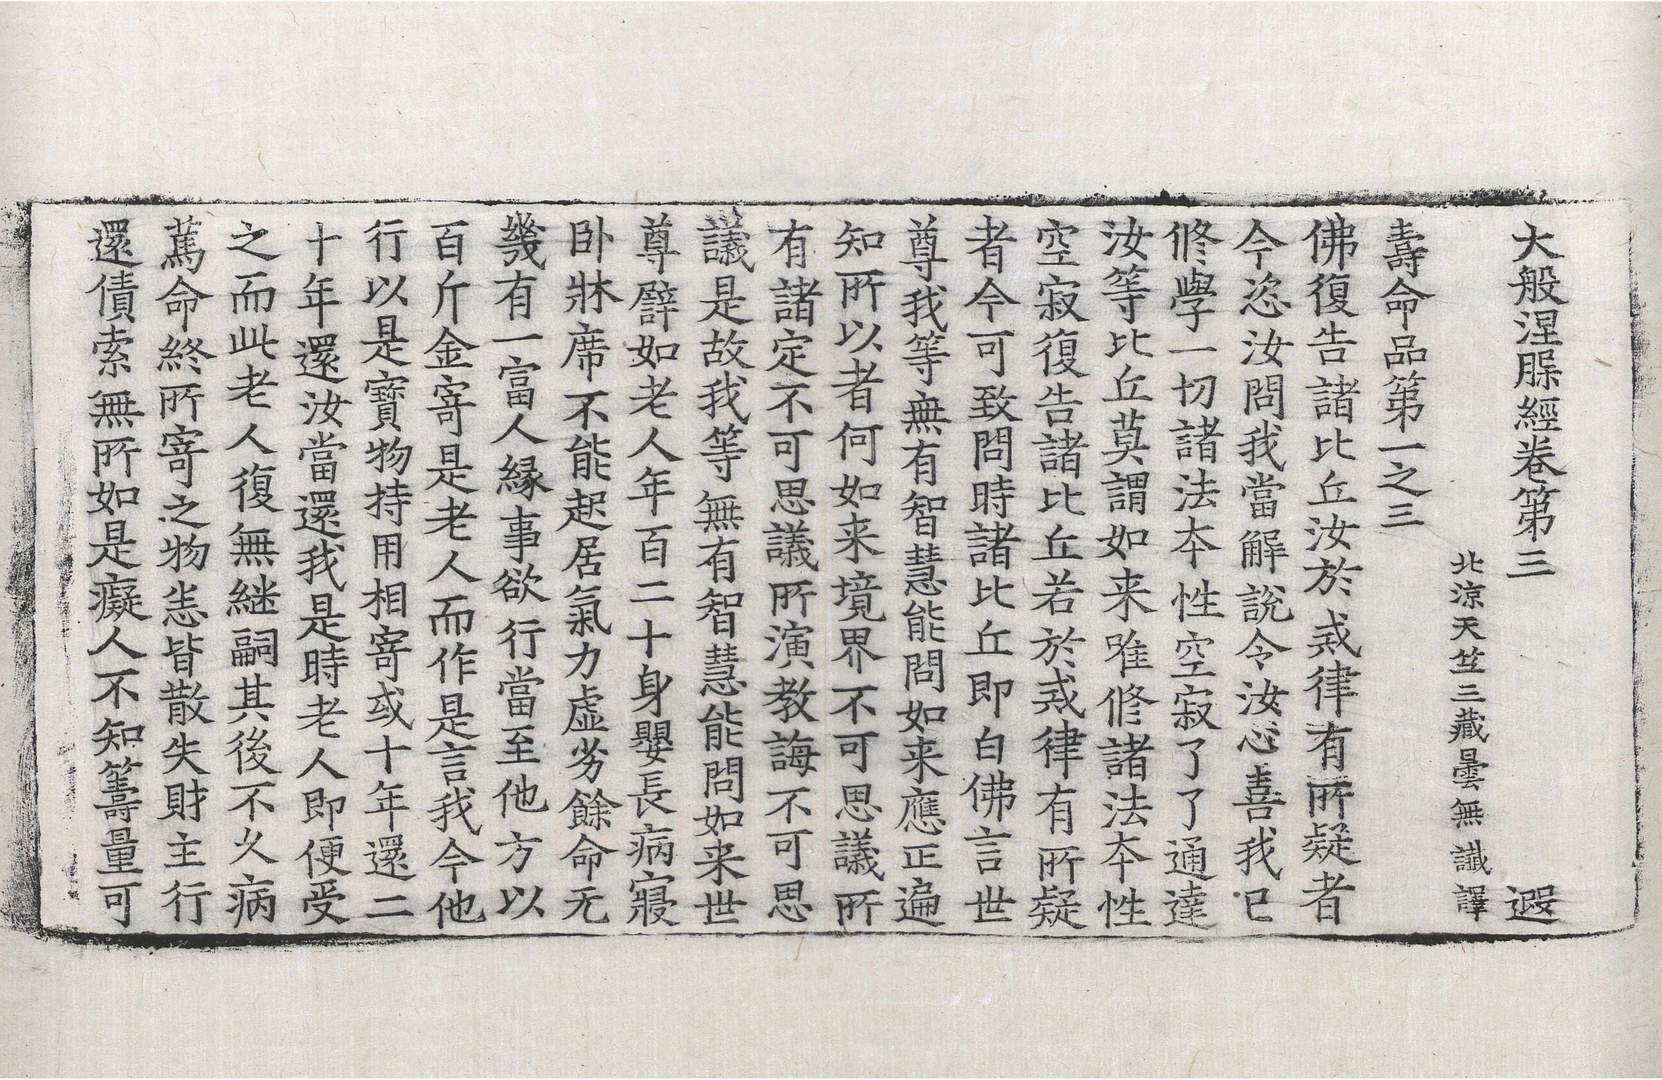 大般涅槃經卷第三　遐
北涼天竺三藏曇無讖譯
壽命品第一之三
佛復告諸比丘汝於戒律有所疑者
今恣汝問我當解說令汝心喜我已
修學一切諸法本性空寂了了通達
汝等比丘莫謂如来唯修諸法本性
空寂復告諸比丘若於戒律有所疑
者今可致問時諸比丘即白佛言世
尊我等無有智慧能問如来應正遍
知所以者何如来境界不可思議所
有諸定不可思議所演教誨不可思
議是故我等無有智慧能問如来世
尊譬如老人年百二十身嬰長病寢
卧牀席不能起居氣力虛劣餘命无
幾有一富人緣事欲行當至他方以
百斤金寄是老人而作是言我今他
行以是寶物持用相寄或十年還二
十年還汝當還我是時老人即便受
之而此老人復無継嗣其後不久病
篤命終所寄之物悉皆散失財主行
還債索無所如是癡人不知籌量可